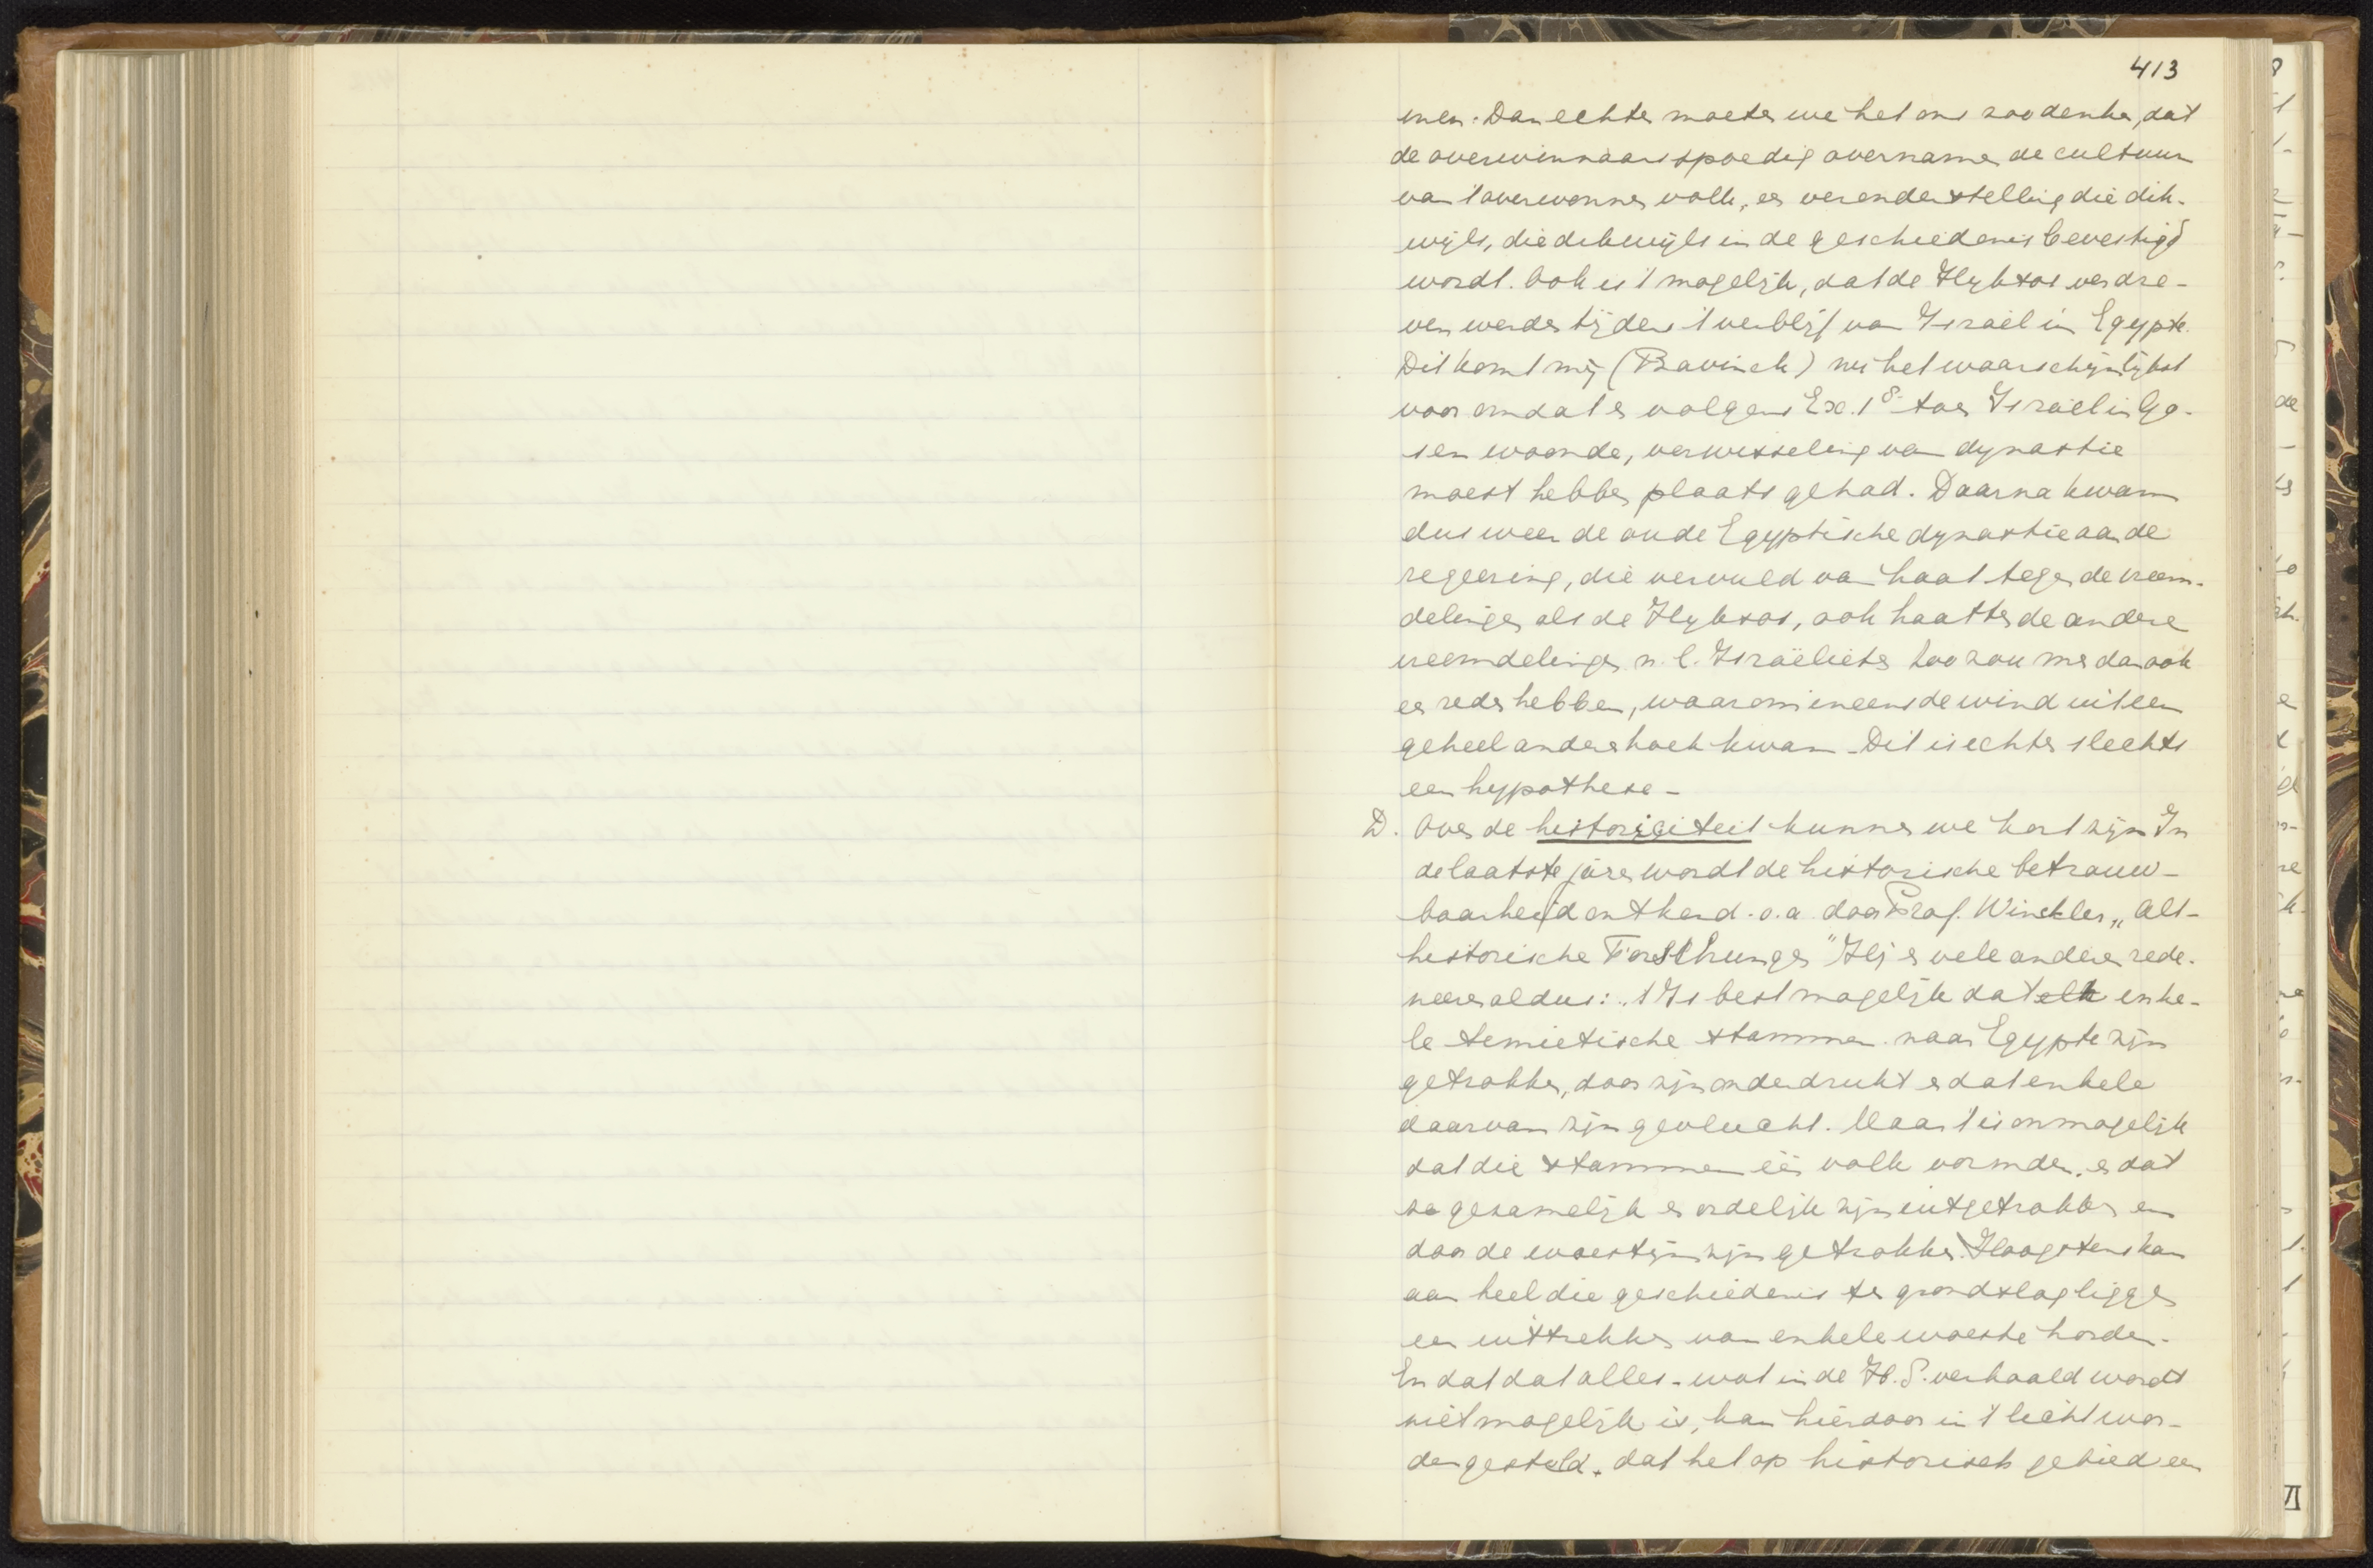 413
men. Dan echter moeten we het ons zoo denken, dat
de overwinnaars spoedig overnamen de cultuur
van 't overwonnen volk, een veronderstelling die dik-
wijls, die dikwijls in de geschiedenis bevestigd
wordt. Ook is 't mogelijk, dat de Hyksos verdre-
ven werden tijdens 't verblijf van Israël in Egypte.
Dit komt mij (Bavinck) nu het waarschijnlijkst
voor omdat er volgens Ex. 1 8 toen Israël in Go-
sen woonde, verwisseling van dynastie
moest hebben plaats gehad. Daarna kwam
dus weer de oude Egyptische dynastie aan de
regeering, die vervuld van haat tegen de vreem-
delingen als de Hyksos, ook haatten de andere
vreemdelingen n.l. Israëlieten Zoo zou men dan ook
een reden hebben, waarom ineens de wind uit een
geheel andere hoek kwam - Dit is echter slechts
een hypothese -
D. Over de historiciteit kunnen we kort zijn In
de laatste jaren wordt de historische betrouw-
baarheid ontkend. o.a. door Prof. Winckler „Alt-
historische Forschungen" Hij en vele anderen rede-
neeren aldus: „'t Is best mogelijk dat elk enke-
le semietische stammen naar Egypte zijn
getrokken, daar zijn onderdrukt en dat enkele
daarvan zijn gevlucht. Maar 't is onmogelijk
dat die stammen één volk vormden, en dat
ze gezamelijk en ordelijk zijn uitgetrokken en
door de woestijn zijn getrokken. Hoogstens kan
aan heel die geschiedenis ten grondslag liggen
een uittrekken van enkele woeste horden.
En dat dat alles - wat in de H.S. verhaald wordt
niet mogelijk is, kan hierdoor in 't licht wor-
den gesteld. dat het op historisch gebied een
VI